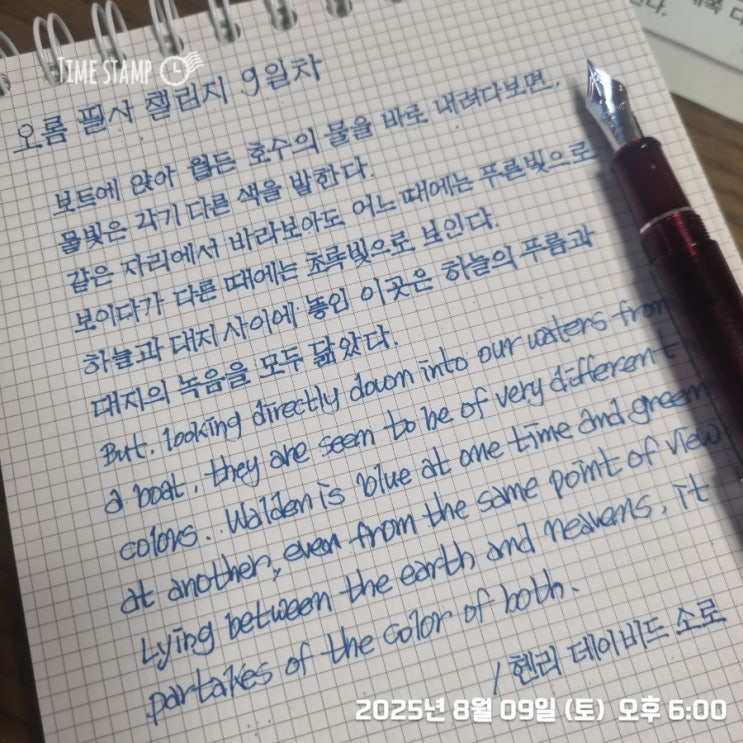 TIME STAMP
오롬 필사 챌린지 9일차
보트에 앉아 월든 호수의 물을 바로 내려다보면,
물빛은 각기 다른 색을 발한다.
같은 자리에서 바라보아도 어느 때에는 푸른빛으로
보이다가 다른 때에는 초록빛으로 보인다.
하늘과 대지 사이에 놓인 이곳은 하늘의 푸름과
대지의 녹음을 모두 닮았다.
But, looking directly down into our waters from
a boat, they are seem to be of very different
colors.. Walden is blue at one time and green
at another, even from the same point of view
Lying between the earth and heavens, it
partakes of the color of both.
/ 헨리 데이비드 소로
2025년 8월 09일 (토) 오후 6:00